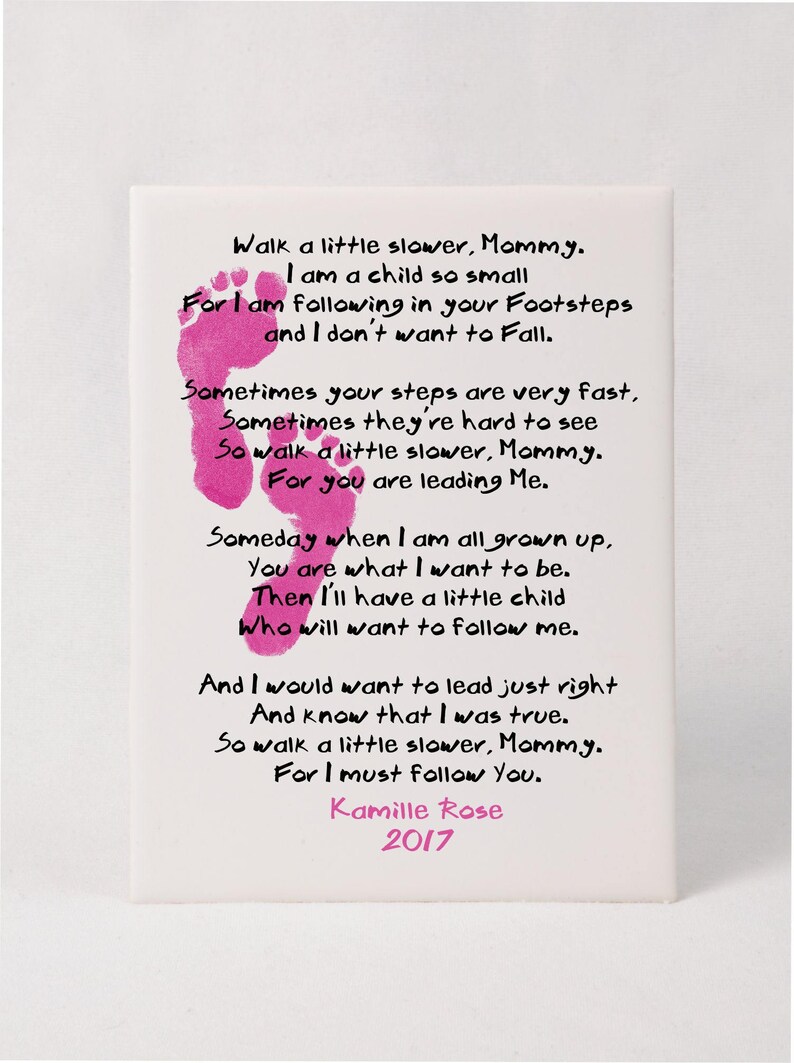 Walk a little slower, Mommy.
I am a child so small
For I am following in your Footsteps
and I don't want to Fall.
Sometimes your steps are very fast,
Sometimes they're hard to see
So walk a little slower, Mommy.
For you are leading Me.
Someday when I am all grown up,
You are what I want to be.
Then I'll have a little child
Who will want to follow me.
And I would want to lead just right
And know that I was true.
So walk a little slower, Mommy.
For I must follow You.
Kamille Rose
2017